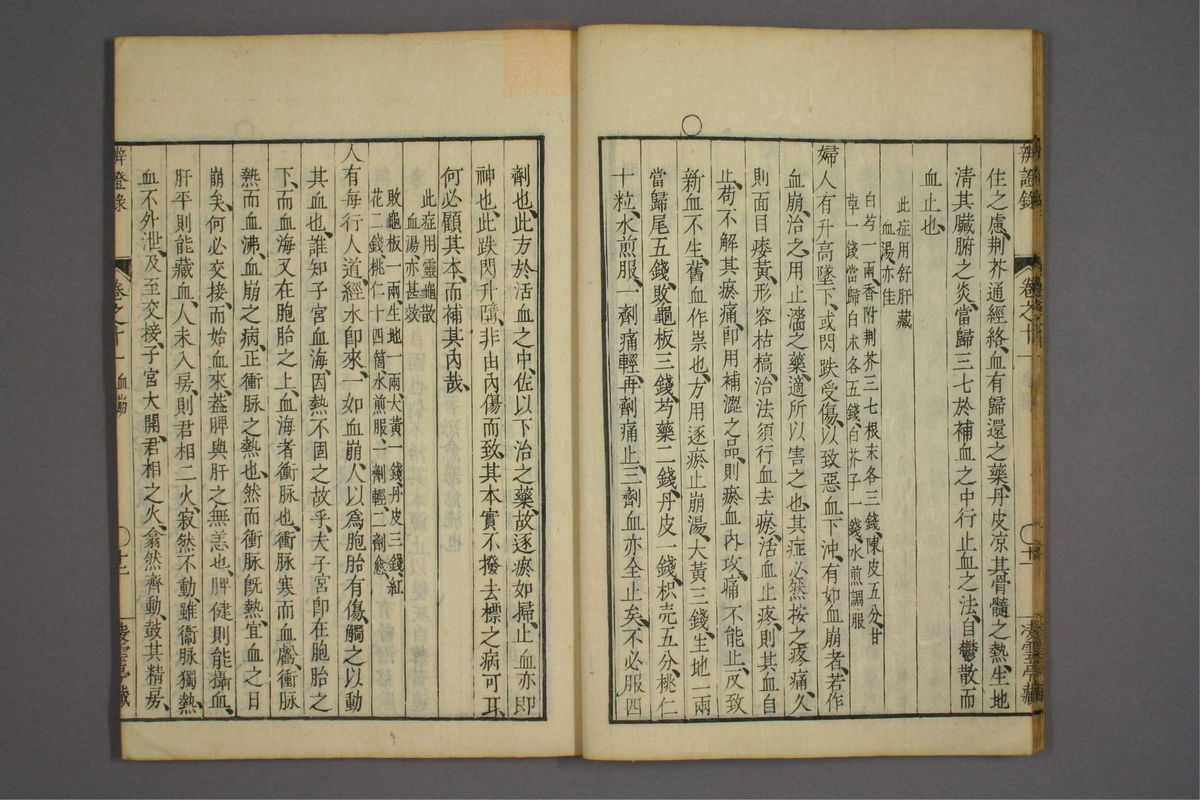 住之慮、荆芥通經絡、血有歸還之藥、丹皮凉其骨髓之熱、生地
淸其臟腑之炎、當歸三七於補血之中、行止血之法、自鬱散而
血止也、
此症用舒肝藏
血湯、亦佳
白芍一兩、香附荆芥三七根末各三錢、陳皮五分、甘
草一錢、當歸白朮各五錢、白芥子一錢、水煎調服
婦人有升高墜下、或閃跌受傷、以致惡血下流、有如血崩者、若作
血崩治之、用止濇之藥、適所以害之也、其症必然按之疼痛、久
則面目痿黃、形容枯槁、治法須行血去瘀、活血止疼、則其血自
止、苟不解其瘀痛、卽用補澀之品、則瘀血內攻、痛不能止、反致
新血不生、舊血作祟也、方用逐瘀止崩湯、大黃三錢、生地一兩
當歸尾五錢、敗龜板三錢、芍藥二錢、丹皮一錢、枳壳五分、桃仁
十粒、水煎服、一劑痛輕、再劑痛止、三劑血亦全止矣、不必服四
辨證錄
卷之十一
十一
劑也、此方於活血之中、佐以下治之藥、故逐瘀如掃、止血亦卽
神也、此跌閃升墮、非由內傷而致、其本實不撥、去標之病可耳、
何必顧其本、而補其內哉、
此症用靈龜散
血湯、亦甚效
敗龜板一兩、生地一兩、大黃一錢、丹皮三錢、紅
花二錢、桃仁十四箇、水煎服、一劑輕、二劑愈、
人有每行人道、經水卽來、一如血崩、人以爲胞胎有傷、觸之以動
其血也、誰知子宮血海、因熱不固之故乎、夫子宮卽在胞胎之
下、而血海又在胞胎之上、血海者衝脉也、衝脉寒而血虧、衝脉
熱而血沸、血崩之病、正衝脉之熱也、然而衝脉旣熱、宜血之日
崩矣、何必交接、而始血來、蓋脾與肝之無恙也、脾健則能攝血、
肝平則能藏血、人未入房、則君相二火、寂然不動、雖衝脉獨熱、
血不外泄、及至交接、子宮大開、君相之火、翕然齊動、鼓其精房、
辨證錄
卷之十一 血崩
十二